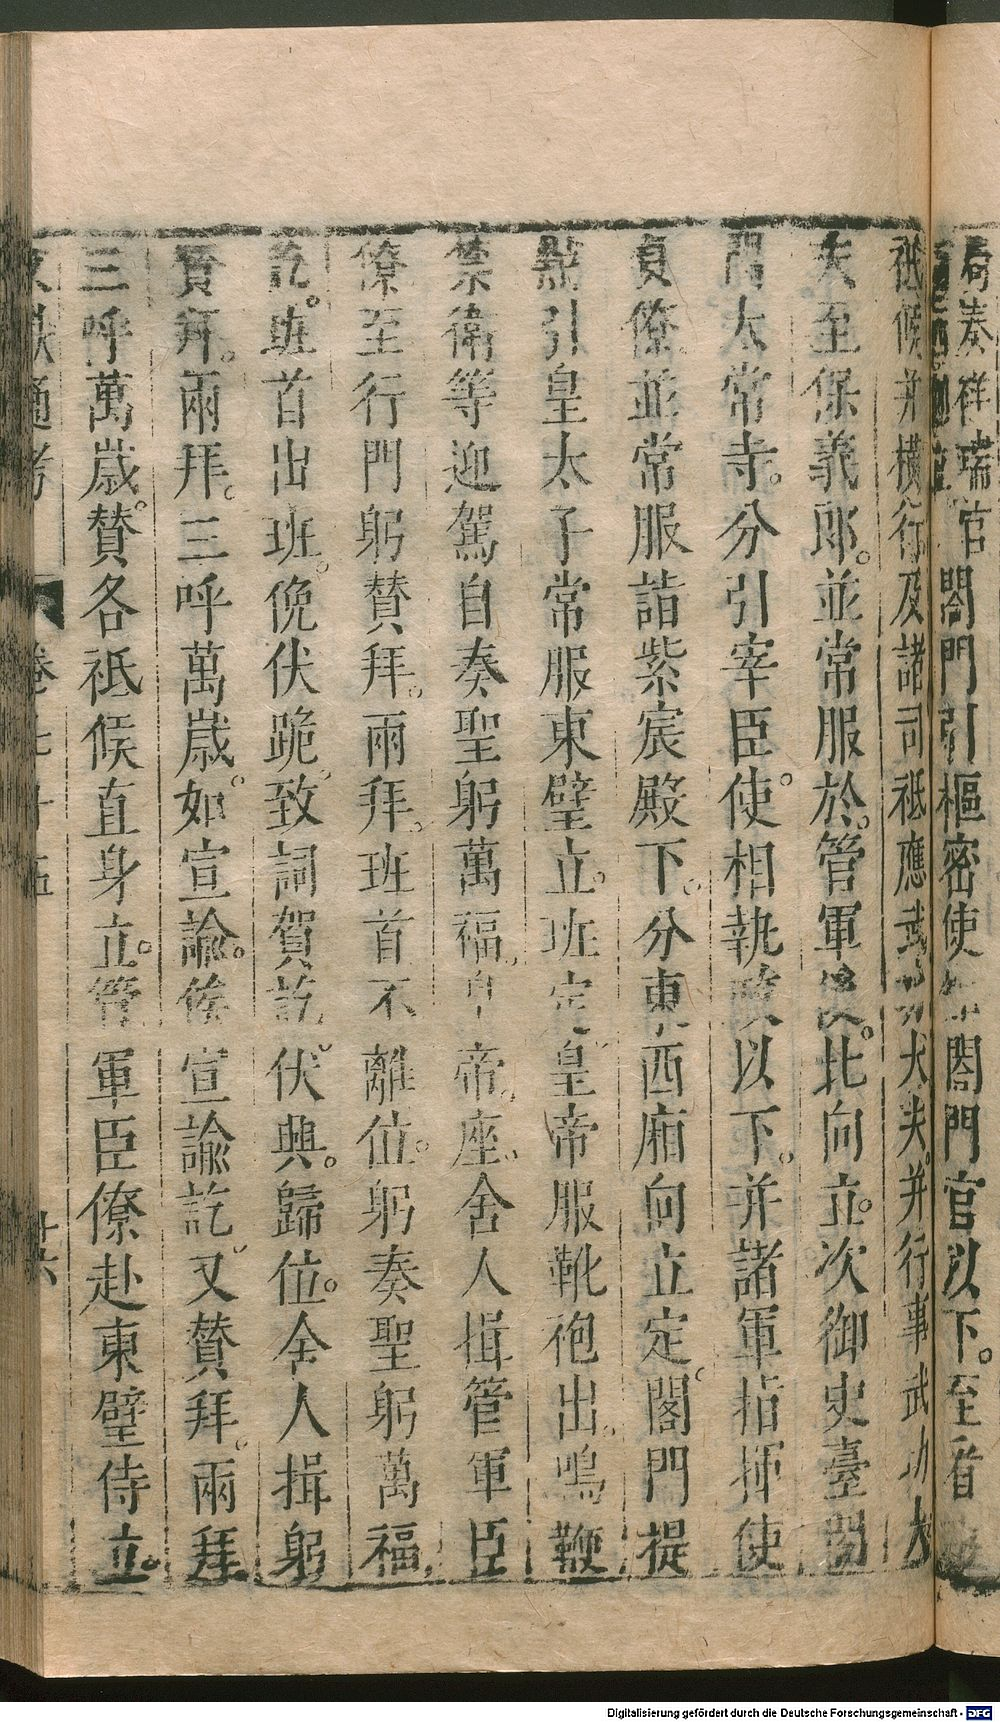 奏祥瑞官閤門引樞密使閤門官以下。至看
祗候并橫行及諸司祗應武功大夫。并行事武功大
夫至保義郎。並常服於。管軍後。北向立。次御史臺閤
門太常寺。分引宰臣使。相執政以下。并諸軍指揮使
員僚。並常服詣紫宸殿下。分東西廂向立定。閤門提
點引皇太子常服東壁立。班定。皇帝服靴袍出。鳴鞭
禁衛等迎駕自奏聖躬萬福。皇帝座。舍人揖管軍臣
僚至行門躬贊拜。兩拜。班首不離位。躬奏聖躬萬福
訖。班首出班。俛伏跪。致詞賀訖。伏興。歸位。舍人揖躬
贊拜。兩拜。三呼萬歲。如宣諭。俟宣諭訖。又贊拜。兩拜
三呼萬歲。贊各祗候直身立。管軍臣僚赴東壁侍立。
文獻通考
卷七十五
廿六
Digitalisierung gefördert durch die Deutsche Forschungsgemeinschaft - DFG